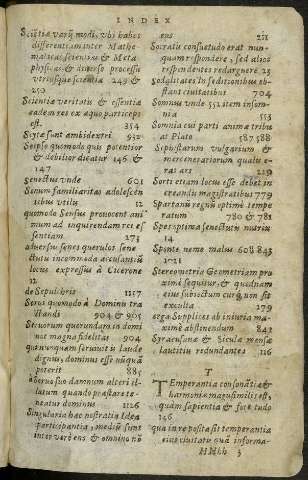 INDEX
Scientiæ varij modi, vbi habes
differentiam inter Mathe-
maticas scientias & Meta
physicas & diuerso processu
vtriusque scientia 249 &
250
Scientiæ veritatis & essentiæ
eadem res ex æquo particeps
est. 354
Scytæ sunt ambidextri 932
Seipso quomodo quis potentior
& debilior dicatur 146 &
147
Senectus vnde 603
Senum familiaritas adolescen
tibus vtilis 12
quomodo Sensus prouocent ani
mum ad inquirendam rei es
sentiam 273
aduersus senes querulos sene
ctutis incommoda accusantiū
locus expressus à Cicerone
12
de Sepulchris 1157
Seros quomodo à Dominū tra
ctandi 904 & 905
Seruorum quorundam in domi
nos magna fidelitas 904
quicunque seruitutis laude
dignus, dominus esse nūquā
poterit 885
alter illius
quando præstare te-
neatur dominus 1126
Singularia hac nostratia Idea
participantia, mediū sunt
inter verū ens & omnino nō
ens 251
Socratis consuetudo erat nun-
quam respondere, sed alios
respondentes redarguere 23
Sodalitates in seditionibus ob-
stant ciuitatibus 704
Somnus vnde 551 item som-
nia 553
Somnia cui parti animæ tribu
at Plato 587 588
Sophistarum vulgarium &
mercenariorum qualis e-
rat ars 229
Sorti etiam locus esse debet in
creandis magistratibus 779
Spartanū regnū optime tempe
ratum 780 & 781
Spes optima senectutis nutrix
14
Spinte nomē malus 608 843
1021
Stereometria Geometriam pro
ximè sequitur, & quidnam
eius subiectum sit & cur, non sit
exculta 279
erga Supplices ab iniuria ma-
ximè abstinendum 842
Syracusanæ & Siculæ mensæ
lautitiis redundantes 116
T
TEmperantia consonātiæ &
harmoniæ magis similis est,
quàm sapientia & fortitudo
146
qua in re posita sit temperantia
eius ciuitatis quā informa-
HHhh 3